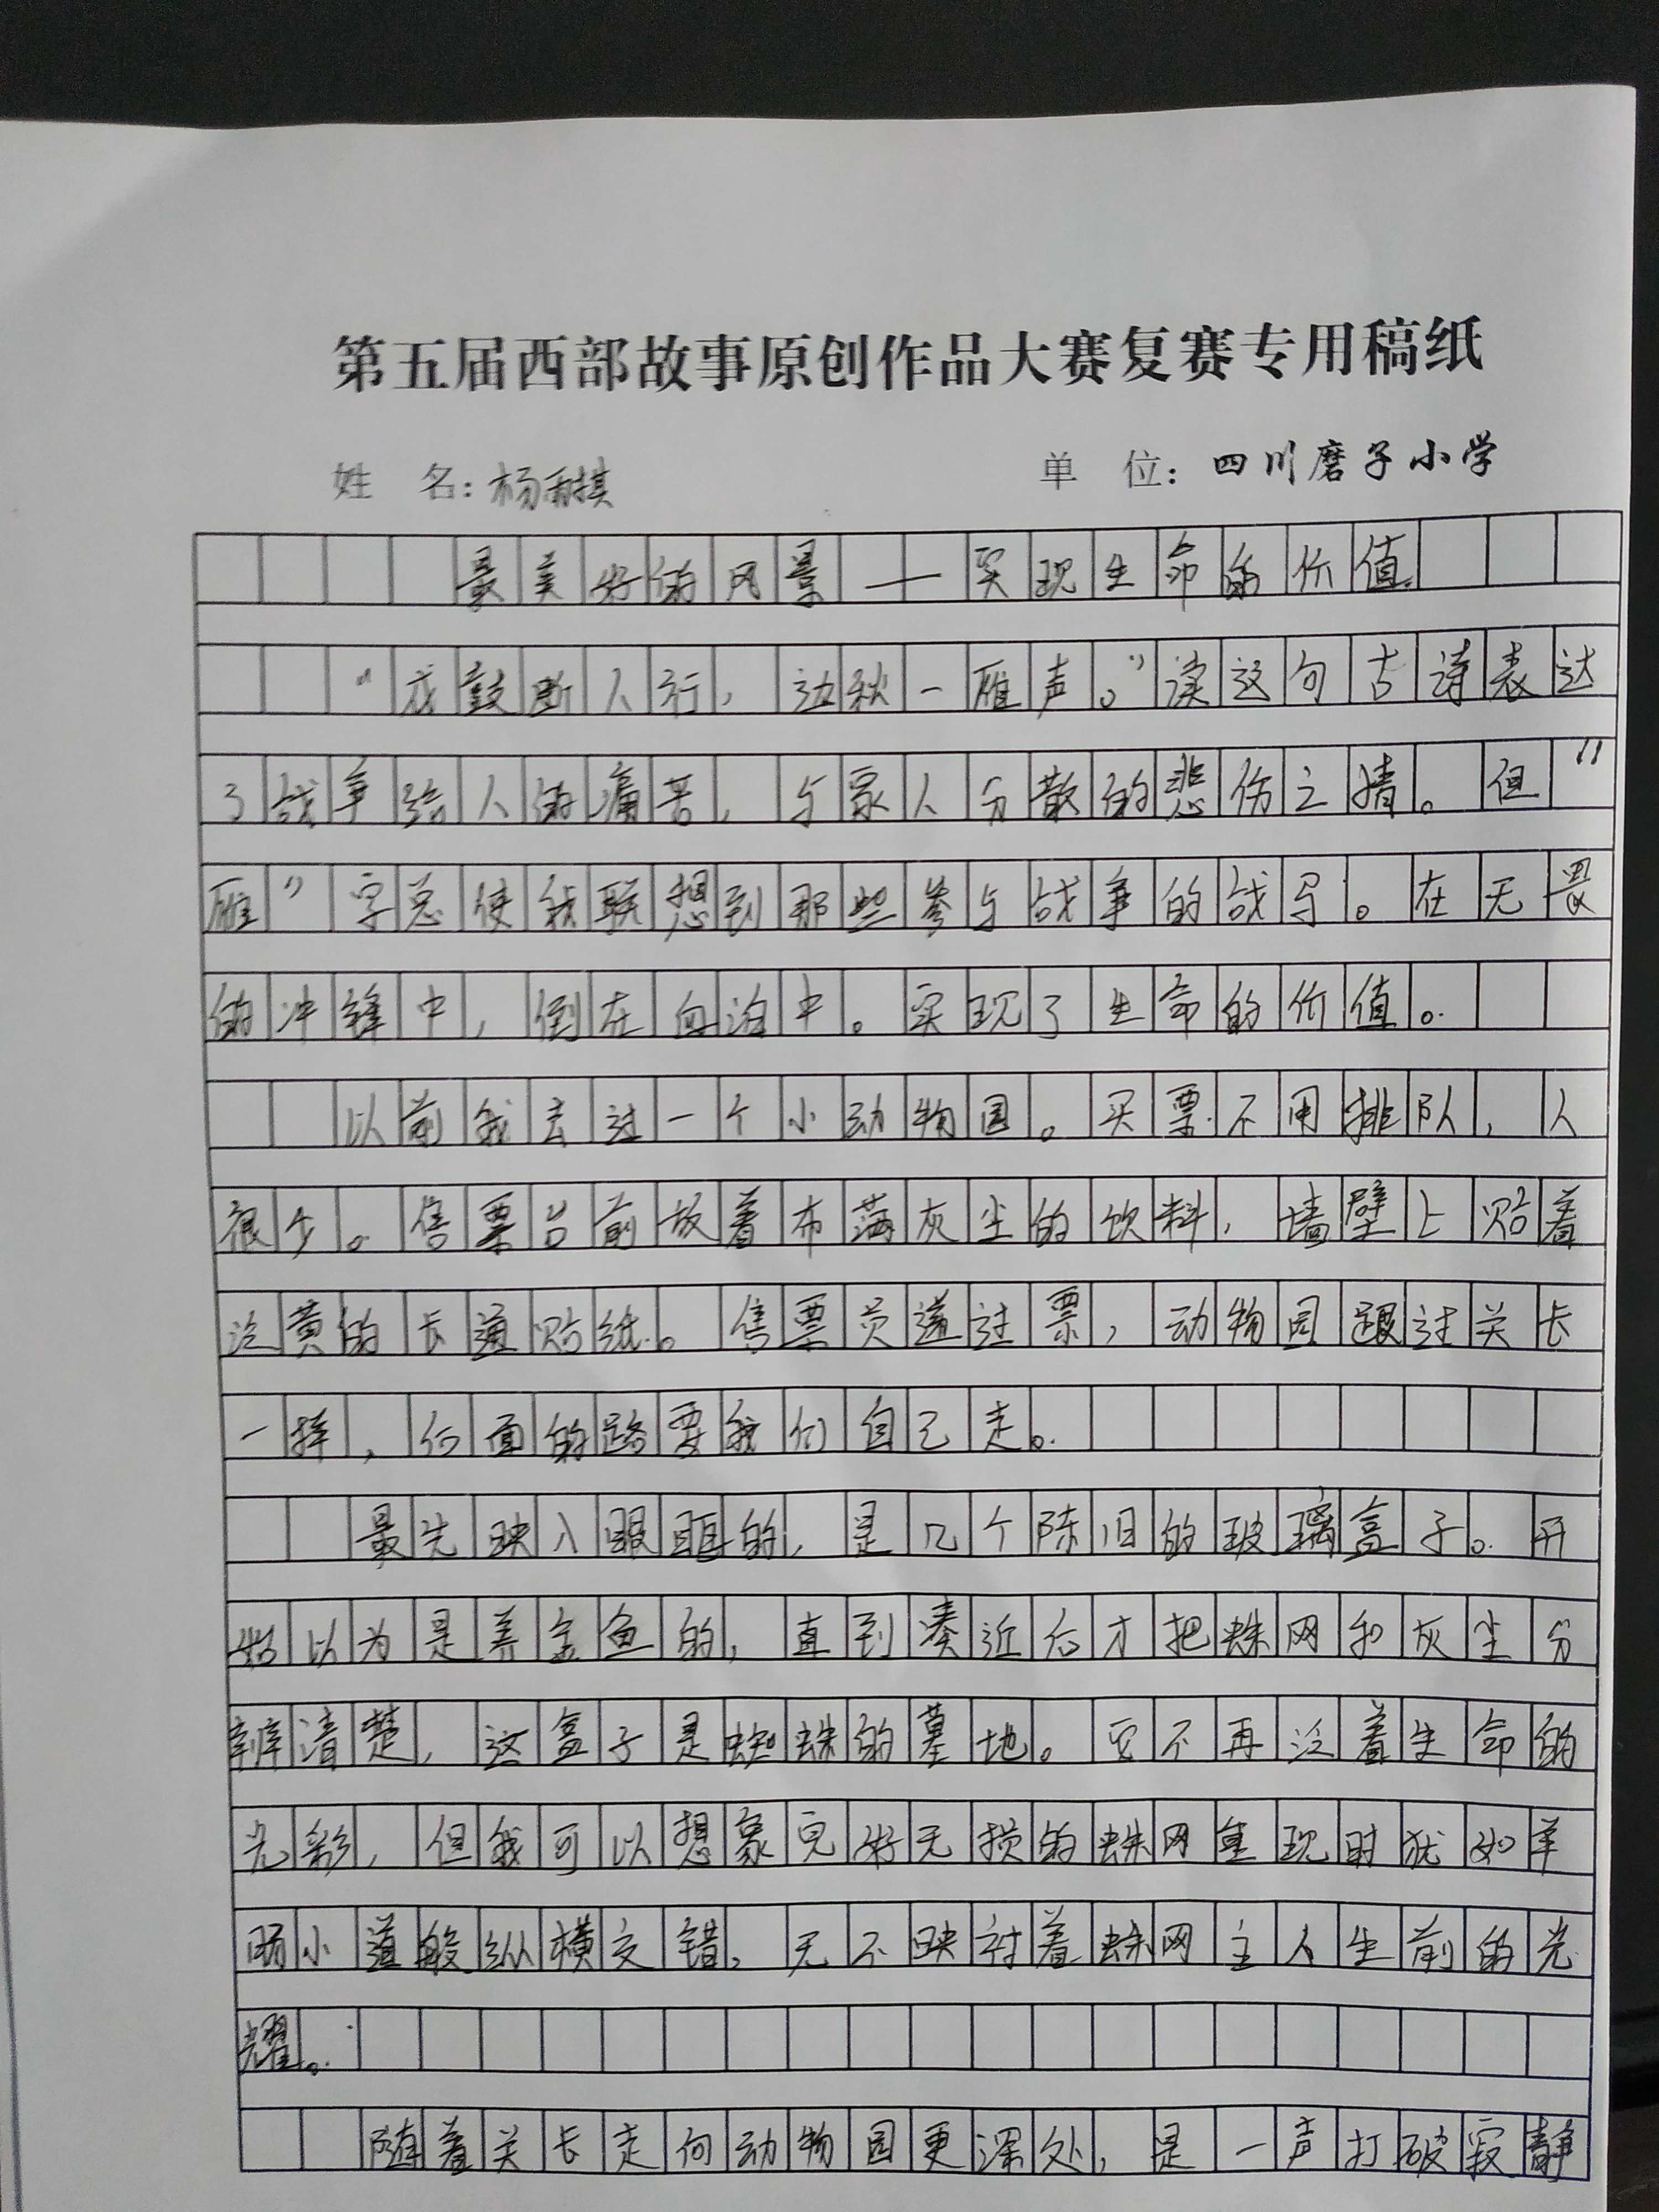 第五届西部故事原创作品大赛复赛专用稿纸
姓 名：杨 单 位：四川磨子小学
最美好的风景——实现生命的价值
“戍鼓断人行，边秋一雁声。”读这句古诗表达
了战争给人的痛苦，与家人分散的悲伤之情。但“
雁”字总使我联想到那些参与战争的战号。在无畏
的冲锋中，倒在血泊中。实现了生命的价值。
以前我去过一个小动物园。买票不用排队，人
很少。售票台前放着布满灰尘的饮料，墙壁上贴着
泛黄的卡通贴纸。售票员递过票，动物园跟过关卡
一样，后面的路要我们自己走。
最先映入眼眶的，是几个陈旧的玻璃盒子。开
始以为是养金鱼的，直到凑近后才把蛛网和灰尘分
辨清楚，这盒子是蜘蛛的墓地。它不再泛着生命的
光彩，但我可以想象完好无损的蛛网呈现时犹如羊
肠小道般纵横交错，无不映衬着蛛网主人生前的光
耀。
随着关卡走向动物园更深处，是一声打破寂静